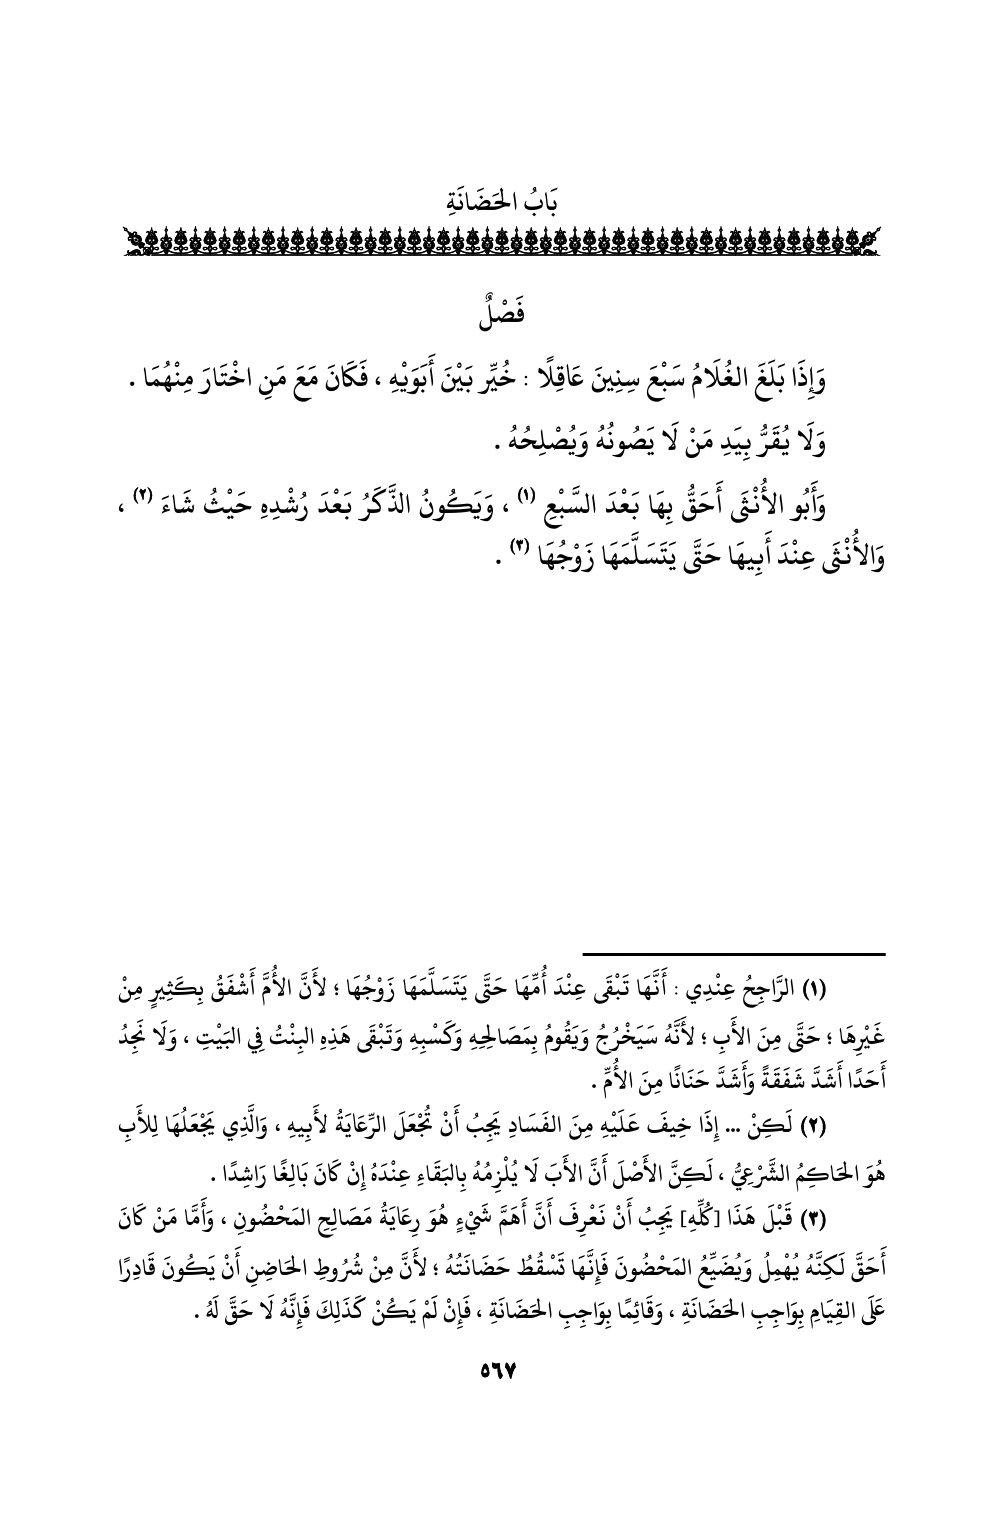 بَابُ الحَضَانَةِ
فَصْلٌ
وَإِذَا بَلَغَ الغُلَامُ سَبْعَ سِنِينَ عَاقِلًا : خُيِّر بَيْنَ أَبَوَيْهِ ، فَكَانَ مَعَ مَنِ اخْتَارَ مِنْهُمَا .
وَلَا يُقَرُّ بِيَدِ مَنْ لَا يَصُونُهُ وَيُصْلِحُهُ .
وَأَبُو الأُنْثَى أَحَقُّ بِهَا بَعْدَ السَّبْعِ (١) ، وَيَكُونُ الذَّكَرُ بَعْدَ رُشْدِهِ حَيْثُ شَاءَ (٢) ،
وَالأُنْثَى عِنْدَ أَبِيهَا حَتَّى يَتَسَلَّمَهَا زَوْجُهَا (٣) .
(١) الرَّاجِحُ عِنْدِي : أَنَّهَا تَبْقَى عِنْدَ أُمِّهَا حَتَّى يَتَسَلَّمَهَا زَوْجُهَا ؛ لأَنَّ الأُمَّ أَشْفَقُ بِكَثِيرٍ مِنْ
غَيْرِهَا ؛ حَتَّى مِنَ الأَبِ ؛ لأَنَّهُ سَيَخْرُجُ وَيَقُومُ بِمَصَالِحِهِ وَكَسْبِهِ وَتَبْقَى هَذِهِ البِنْتُ فِي البَيْتِ ، وَلَا نَجِدُ
أَحَدًا أَشَدَّ شَفَقَةً وَأَشَدَّ حَنَانًا مِنَ الأُمِّ .
(٢) لَكِنْ ... إِذَا خِيفَ عَلَيْهِ مِنَ الفَسَادِ يَجِبُ أَنْ تُجْعَلَ الرِّعَايَةُ لأَبِيهِ ، وَالَّذِي يَجْعَلُهَا لِلأَبِ
هُوَ الحَاكِمُ الشَّرْعِيُّ ، لَكِنَّ الأَصْلَ أَنَّ الأَبَ لَا يُلْزِمُهُ بِالبَقَاءِ عِنْدَهُ إِنْ كَانَ بَالِغًا رَاشِدًا .
(٣) قَبْلَ هَذَا [كُلِّهِ] يَجِبُ أَنْ نَعْرِفَ أَنَّ أَهَمَّ شَيْءٍ هُوَ رِعَايَةُ مَصَالِحِ المَحْضُونِ ، وَأَمَّا مَنْ كَانَ
أَحَقَّ لَكِنَّهُ يُهْمِلُ وَيُضَيِّعُ المَحْضُونَ فَإِنَّهَا تَسْقُطُ حَضَانَتُهُ ؛ لأَنَّ مِنْ شُرُوطِ الحَاضِنِ أَنْ يَكُونَ قَادِرًا
عَلَى القِيَامِ بِوَاجِبِ الحَضَانَةِ ، وَقَائِمًا بِوَاجِبِ الحَضَانَةِ ، فَإِنْ لَمْ يَكُنْ كَذَلِكَ فَإِنَّهُ لَا حَقَّ لَهُ .
٥٦٧